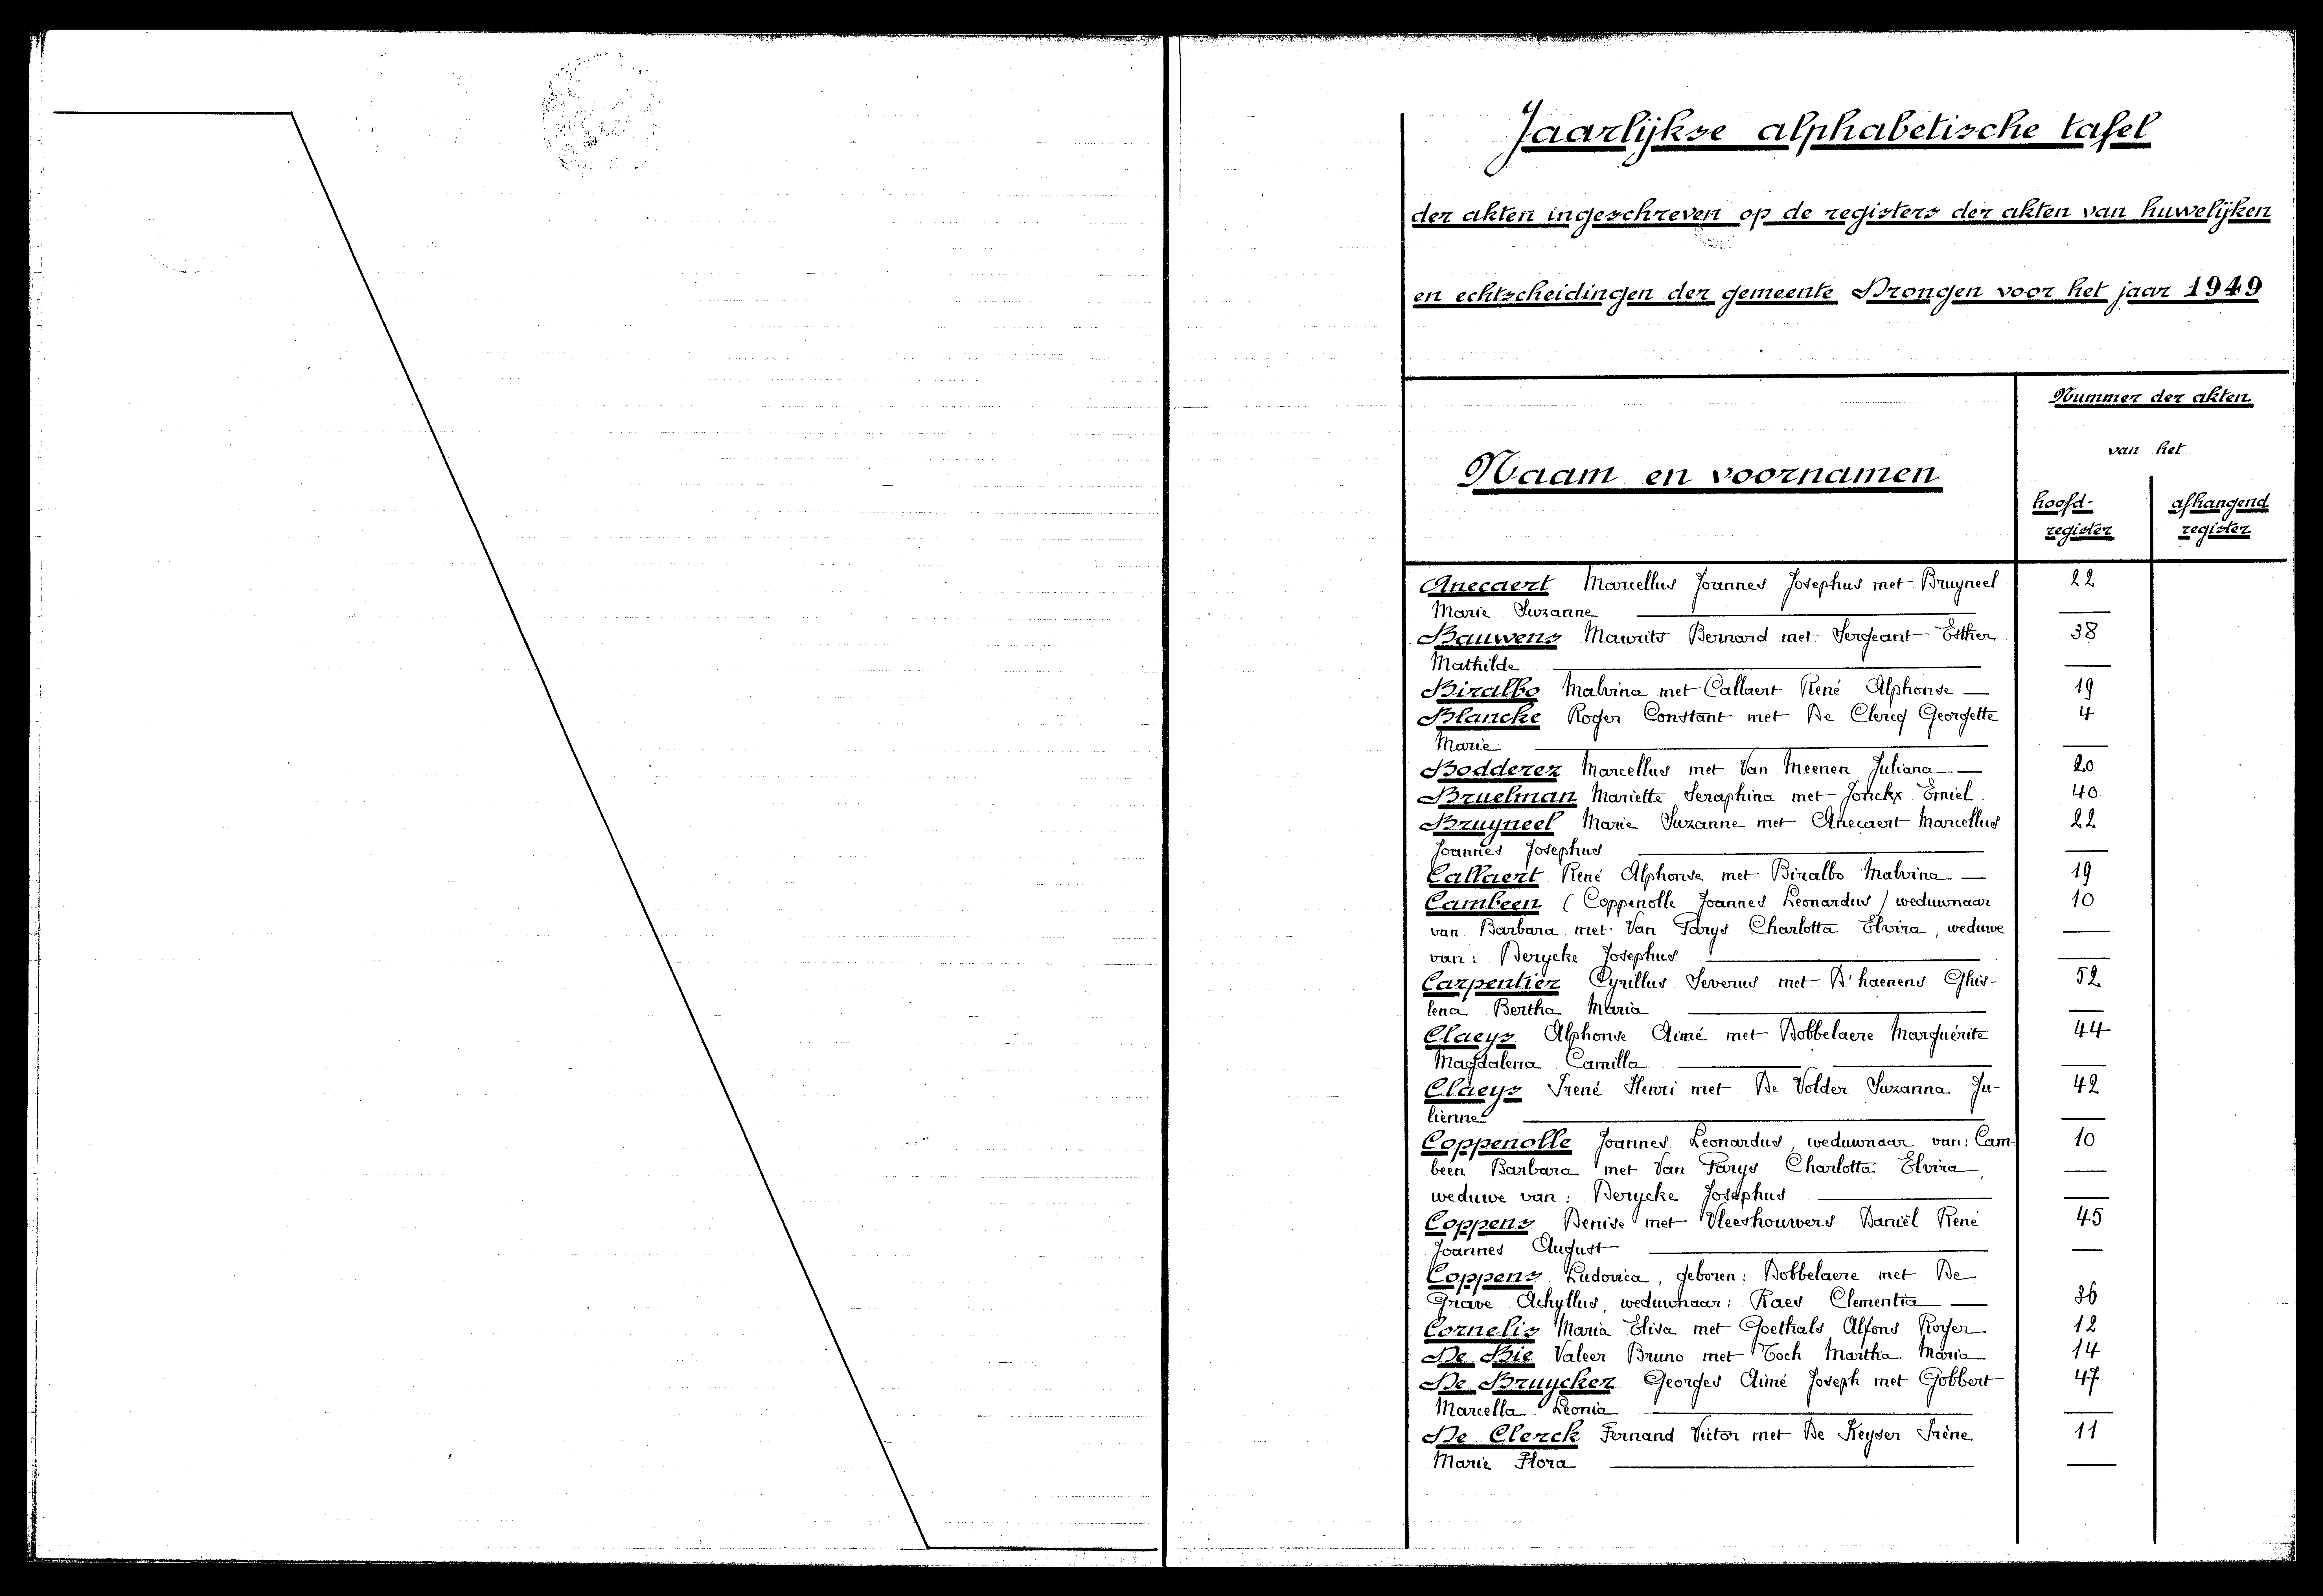 Jaarlijkse alphabetische tafel
der akten ingeschreven op de registers der akten van huwelijken
en echtscheidingen der gemeente Drongen voor het jaar 1949
Nummer der akten
van het
Naam en voornamen
hoofd- afhangend
register register
Anecaert Marcellus Joannes Josephus met Bruyneel 22
Marie Suzanne —
Bauwens Maurits Bernard met Sergeant Esther 38
Mathilde —
Biralbo Malvina met Callaert René Alphonse — 19
Blancke Roger Constant met De Clercq Georgette 4
Marie —
Bodderez Marcellus met Van Meenen Juliana — 20
Bruelman Mariette Seraphina met Jonckx Emiel 40
Bruyneel Marie Suzanne met Anecaert Marcellus 22
Joannes Josephus —
Callaert René Alphonse met Biralbo Malvina — 19
Cambeen (Coppenolle Joannes Leonardus) weduwnaar 10
van Barbara met Van Parys Charlotta Elvira, weduwe —
van: Derycke Josephus —
Carpentier Cyrillus Severus met D'haenens Ghis- 52
lena Bertha Maria —
Claeys Alphonse Aimé met Dobbelaere Marguérite 44
Magdalena Camilla —
Claeys Irené Henri met De Volder Suzanna Ju- 42
lienne —
Coppenolle Joannes Leonardus, weduwnaar van: Cam- 10
been Barbara met Van Parys Charlotta Elvira, —
weduwe van: Derycke Josephus —
Coppens Denise met Vleeshouwers Daniël René 45
Joannes August —
Coppens Ludovica, geboren: Dobbelaere met De
Grave Achyllus, weduwnaar: Raes Clementia — 36
Cornelis Maria Elisa met Goethals Alfons Roger 12
De Bie Valeer Bruno met Toch Martha Maria 14
De Bruycker Georges Aimé Joseph met Gobbert 47
Marcella Leonia —
De Clerck Fernand Victor met De Keyser Irène 11
Marie Flora —